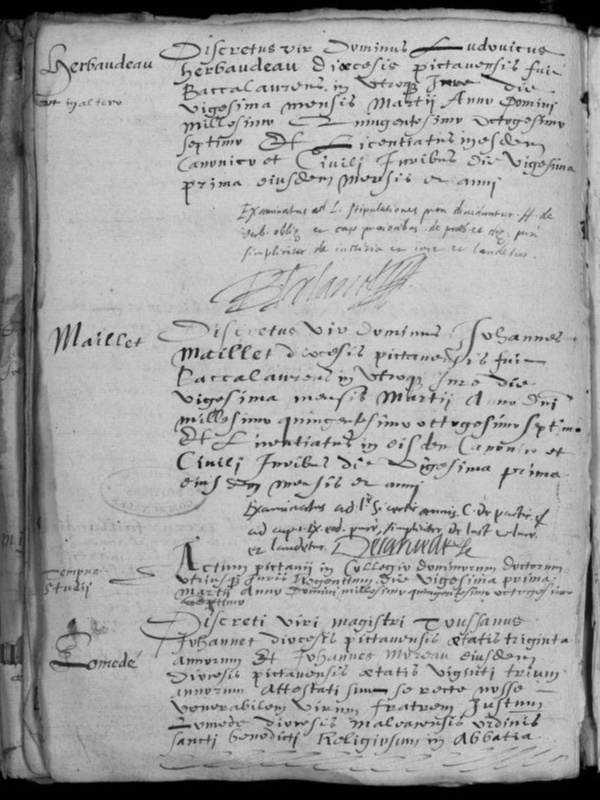 Herbaudeau
Discretus vir Dominus Ludovicus
herbaudeau diœcesis pictavensis fuit
Baccalaureus in utroq Jure die
vigesima mensis Martii Anno Domini
millesimo Quingentesimo octogesimo
septimo Et Licentiatus in eisdem
Canonico et Civili Juribus die vigesima
prima eiusdem mensis et anni
Examinatus ad L. stipulationes non dividuntur ff. de
verb. oblig. et cap
simpliciter de iustitia et iure et laudetur.
Maillet
Discretus vir dominus Johannes
Maillet diocesis pictavensis fuit
Baccalaureus in utroq Jure die
vigesima mensis Martii Anno dni
millesimo quingentesimo octogesimo septimo
Et Licentiatus in eisdem Canonico et
Civili Juribus die vigesima prima
eiusdem mensis et anni
Examinatus ad l. C. de pactis et
ad cap. simpliciter de
et laudetur.
Tempus
studii
Actum pictavii in Collegio dominorum doctorum
utriusq Juris Regentium die vigesima prima
Martii Anno Domini millesimo quingentesimo octogesimo
septimo
Lomedé
Discreti viri magistri Toussanus
Johannet diocesis pictavensis ætatis triginta
annorum Et Johannes Moreau eiusdem
diocesis pictavensis ætatis viginti trium
annorum Attestati sunt se recte nosse
venerabilem virum fratrem Justum
Lomede diocesis maleacensis ordinis
sancti benedicti Religiosum in Abbatia